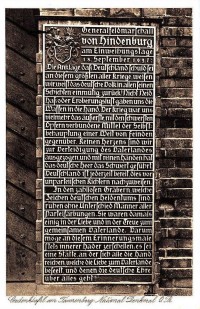 Generalfeldmarschall
von Hindenburg
am Einweihungstage
18. September 1927:
Die Anklage, daß Deutschland schuld sei
an diesem größten aller Kriege, weisen
wir, weist das deutsche Volk in allen seinen
Schichten einmütig zurück! Nicht Neid,
Haß oder Eroberungslust gaben uns die
Waffen in die Hand. Der Krieg war uns
vielmehr das äußerste, mit den schwersten
Opfern verbundene Mittel der Selbst-
behauptung einer Welt von Feinden
gegenüber. Reinen Herzens sind wir
zur Verteidigung des Vaterlandes
ausgezogen und mit reinen Händen hat
das deutsche Heer das Schwert geführt.
Deutschland ist jederzeit bereit, dies vor
unparteiischen Richtern nachzuweisen.
In den zahllosen Gräbern, welche
Zeichen deutschen Heldentums sind,
ruhen ohne Unterschied Männer aller
Parteifärbungen. Sie waren damals
einig in der Liebe und in der Treue zum
gemeinsamen Vaterlande. Darum
möge an diesem Erinnerungsmale
stets innerer Hader zerschellen; es sei
eine Stätte, an der sich alle die Hand
reichen, welche die Liebe zum Vaterlande
beseelt und denen die deutsche Ehre
über alles geht!
Gedenktafel am Tannenberg National Denkmal